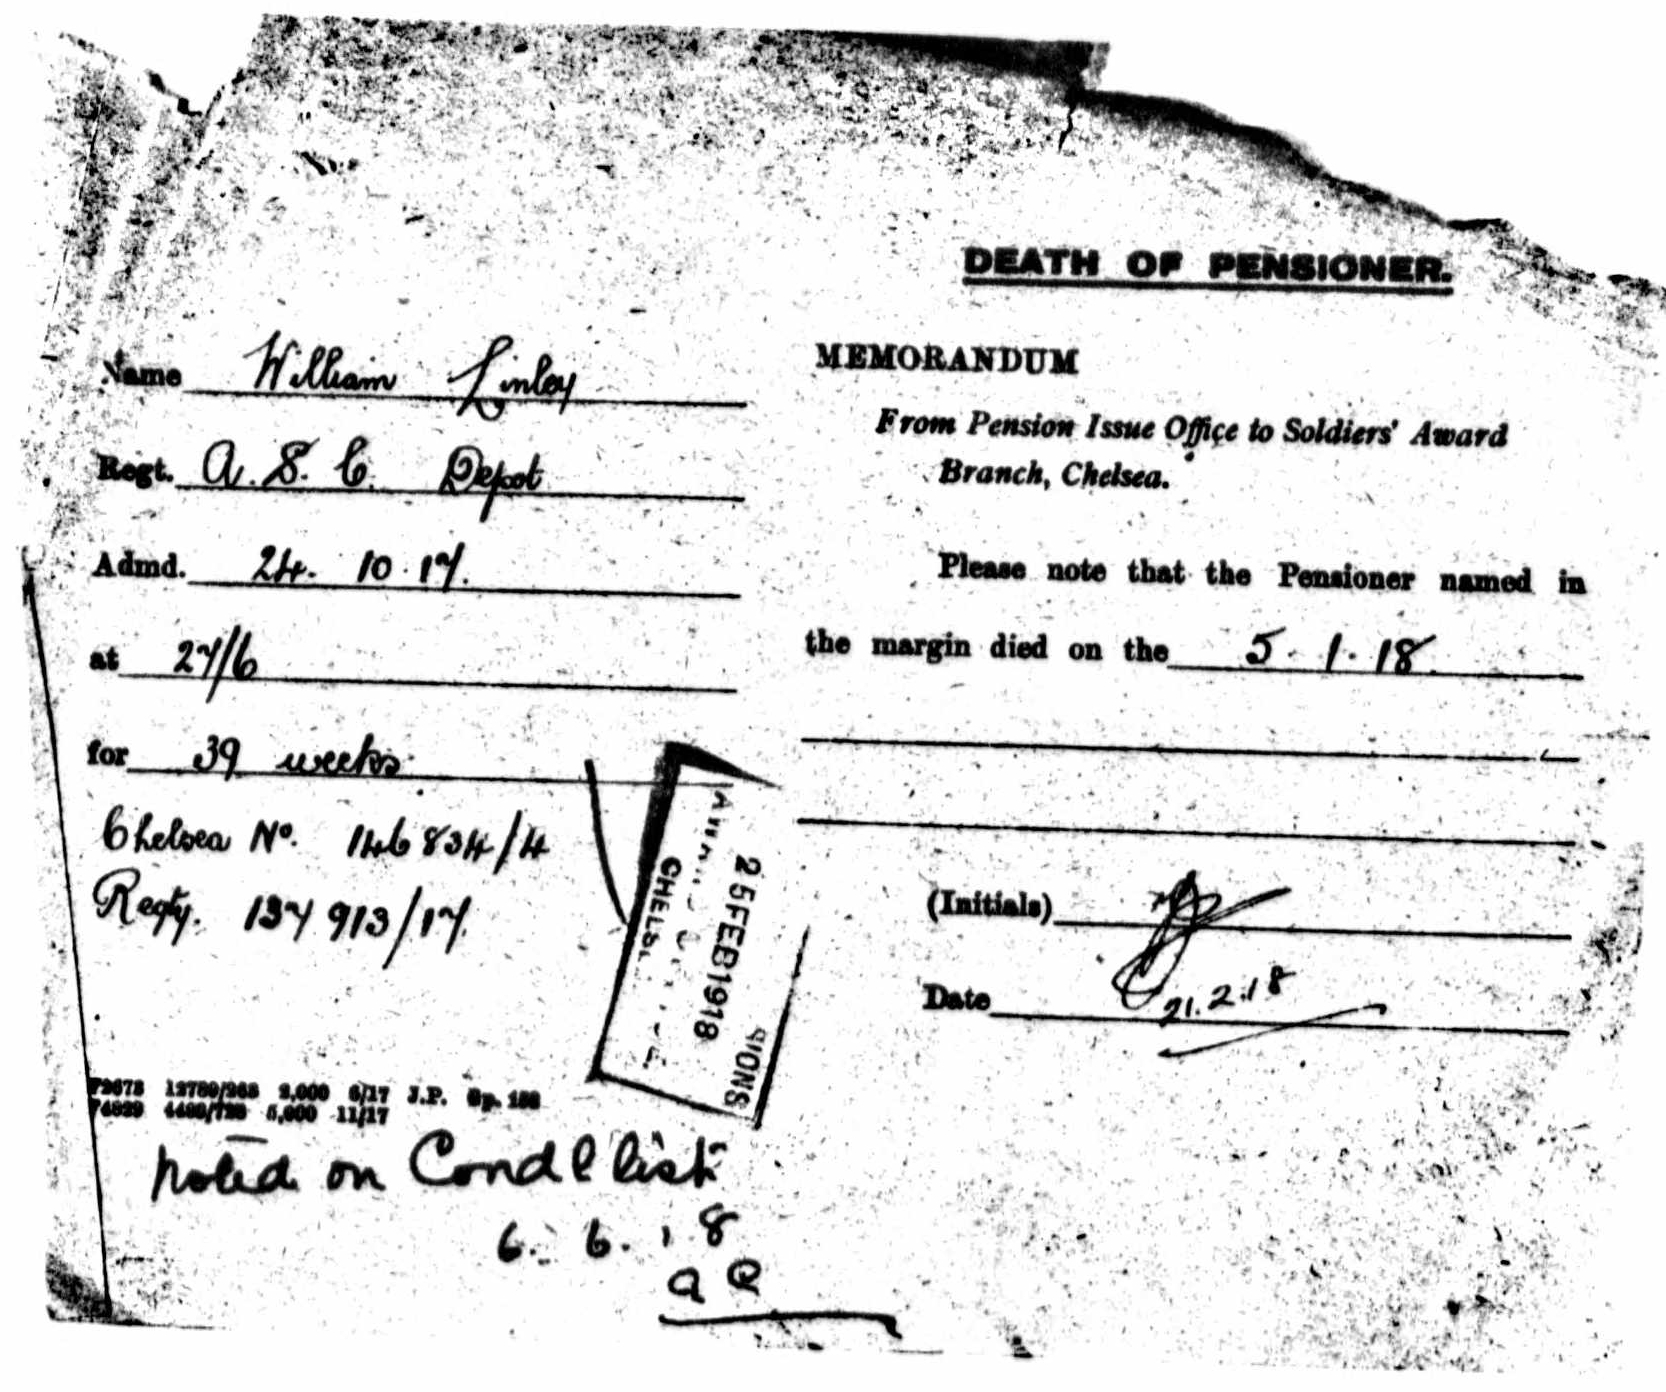 DEATH OF PENSIONER.
Name William Linley
Regt. A. S. C. Depot
Admd. 24. 10. 17.
at 27/6
for 39 weeks
Chelsea No. 146834/4
Regty. 137913/17.
MEMORANDUM
From Pension Issue Office to Soldiers' Award
Branch, Chelsea.
Please note that the Pensioner named in
the margin died on the 5. 1. 18.
(Initials)
Date 21.2.18
25FEB1918
CHELS
SIONS
6/17 J.P.
5,000 11/17
Noted on Condl list
6. 6. 18